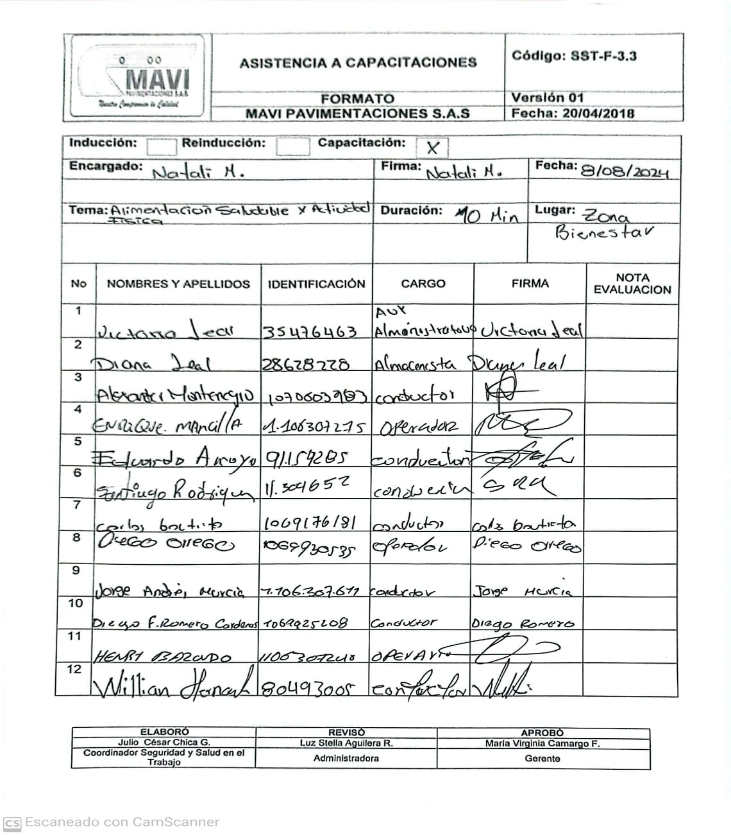 MAVI
PAVIMENTACIONES S.A.S
Nuestro Compromiso es Calidad
ASISTENCIA A CAPACITACIONES
Código: SST-F-3.3
FORMATO
Versión 01
MAVI PAVIMENTACIONES S.A.S
Fecha: 20/04/2018
Inducción: Reinducción: Capacitación: X
Encargado: Natali M. Firma: Natali M. Fecha: 8/08/2024
Tema: Alimentacion Saludable y Actividad Duración: 10 Min Lugar: Zona
Fisica Bienestar
No NOMBRES Y APELLIDOS IDENTIFICACIÓN CARGO FIRMA NOTA EVALUACION
1 Victoria Leal 35476463 Aux Administrativo Victoria Leal
2 Diana Leal 28628228 Almacenista Diana Leal
3 Alexander Montenegro 1070603983 conductor
4 ENRIQUE. MANCILLA 1.106307275 operador
5 Eduardo Arroyo 91.159205 conductor
6 Santiago Rodriguez 11.304652
7 carlos bautista 1069176181 conductor carlos bautista
8 DIEGO ORREGO 1069930535 operador DIEGO ORREGO
9 Jorge Andres Murcia 1.106.307.611 conductor Jorge Murcia
10 Diego F. Romero Cardenas 1069925208 Conductor Diego Romero
11 HENRY 1106307240
12 Willian 80493005
ELABORÓ REVISÓ APROBÓ
Julio César Chica G. Luz Stella Aguilera R. Maria Virginia Camargo F.
Coordinador Seguridad y Salud en el Trabajo Administradora Gerente
CS Escaneado con CamScanner